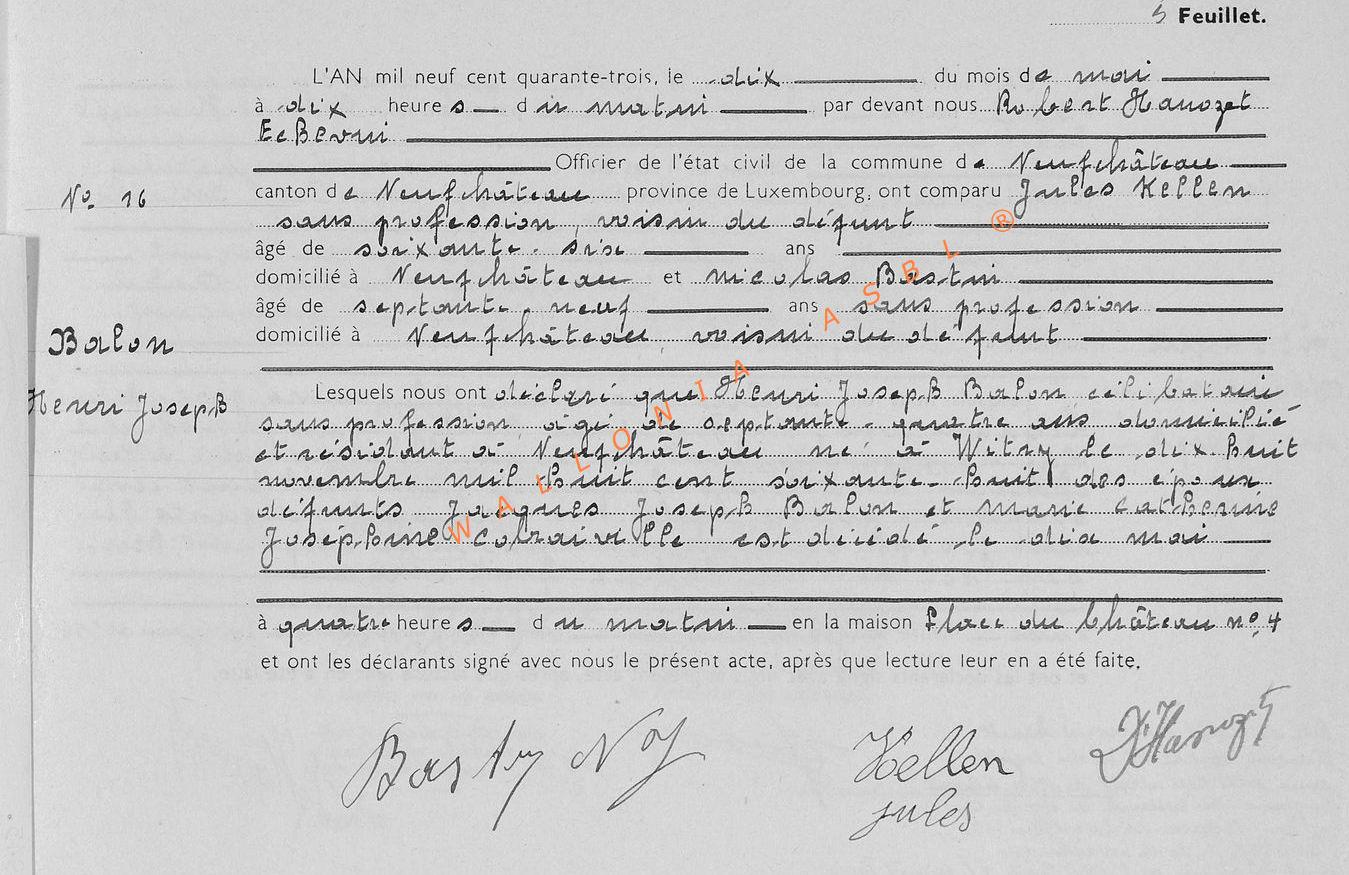 5 Feuillet.
L'AN mil neuf cent quarante-trois, le dix du mois de mai
à dix heures du matin par devant nous Robert Hanozet
Echevin
Officier de l'état civil de la commune de Neufchâteau
N° 16
canton de Neufchâteau province de Luxembourg, ont comparu Jules Kellen
sans profession, voisin du défunt
âgé de soixante-seise ans
domicilié à Neufchâteau et Nicolas Bastin
âgé de septante neuf ans sans profession
domicilié à Neufchâteau, voisin du défunt
Balon
Henri Joseph
Lesquels nous ont déclaré que Henri Joseph Balon célibataire
sans profession, âgé de septante-quatre ans domicilié
et résidant à Neufchâteau né à Witry le dix huit
novembre mil huit cent soixante-huit des époux
défunts Jacques Joseph Balon et Marie Catherine
Joséphine est décédé le dix mai
à quatre heures du matin en la maison Place du Château n° 4
et ont les déclarants signé avec nous le présent acte, après que lecture leur en a été faite.
Kellen
jules
WALLONIA ASBL ®